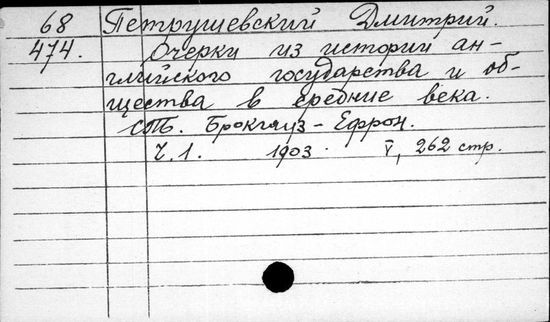 68 Петрушевский Дмитрий.
474. Очерки из истории ан-
глийского государства и об-
щества в средние века.
СПб. Брокгауз-Ефрон.
Ч.1. 1903. V, 262 стр.